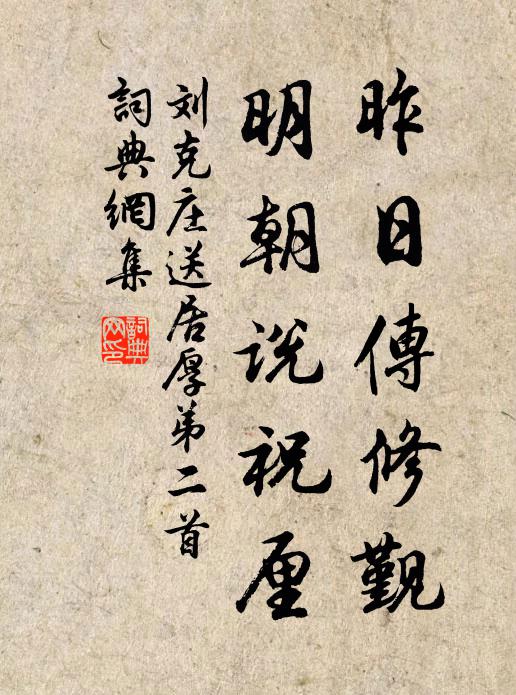 昨日傳修覲
明朝說祝厘
刘克庄送居厚弟二首
詞典網集
詞典
网印